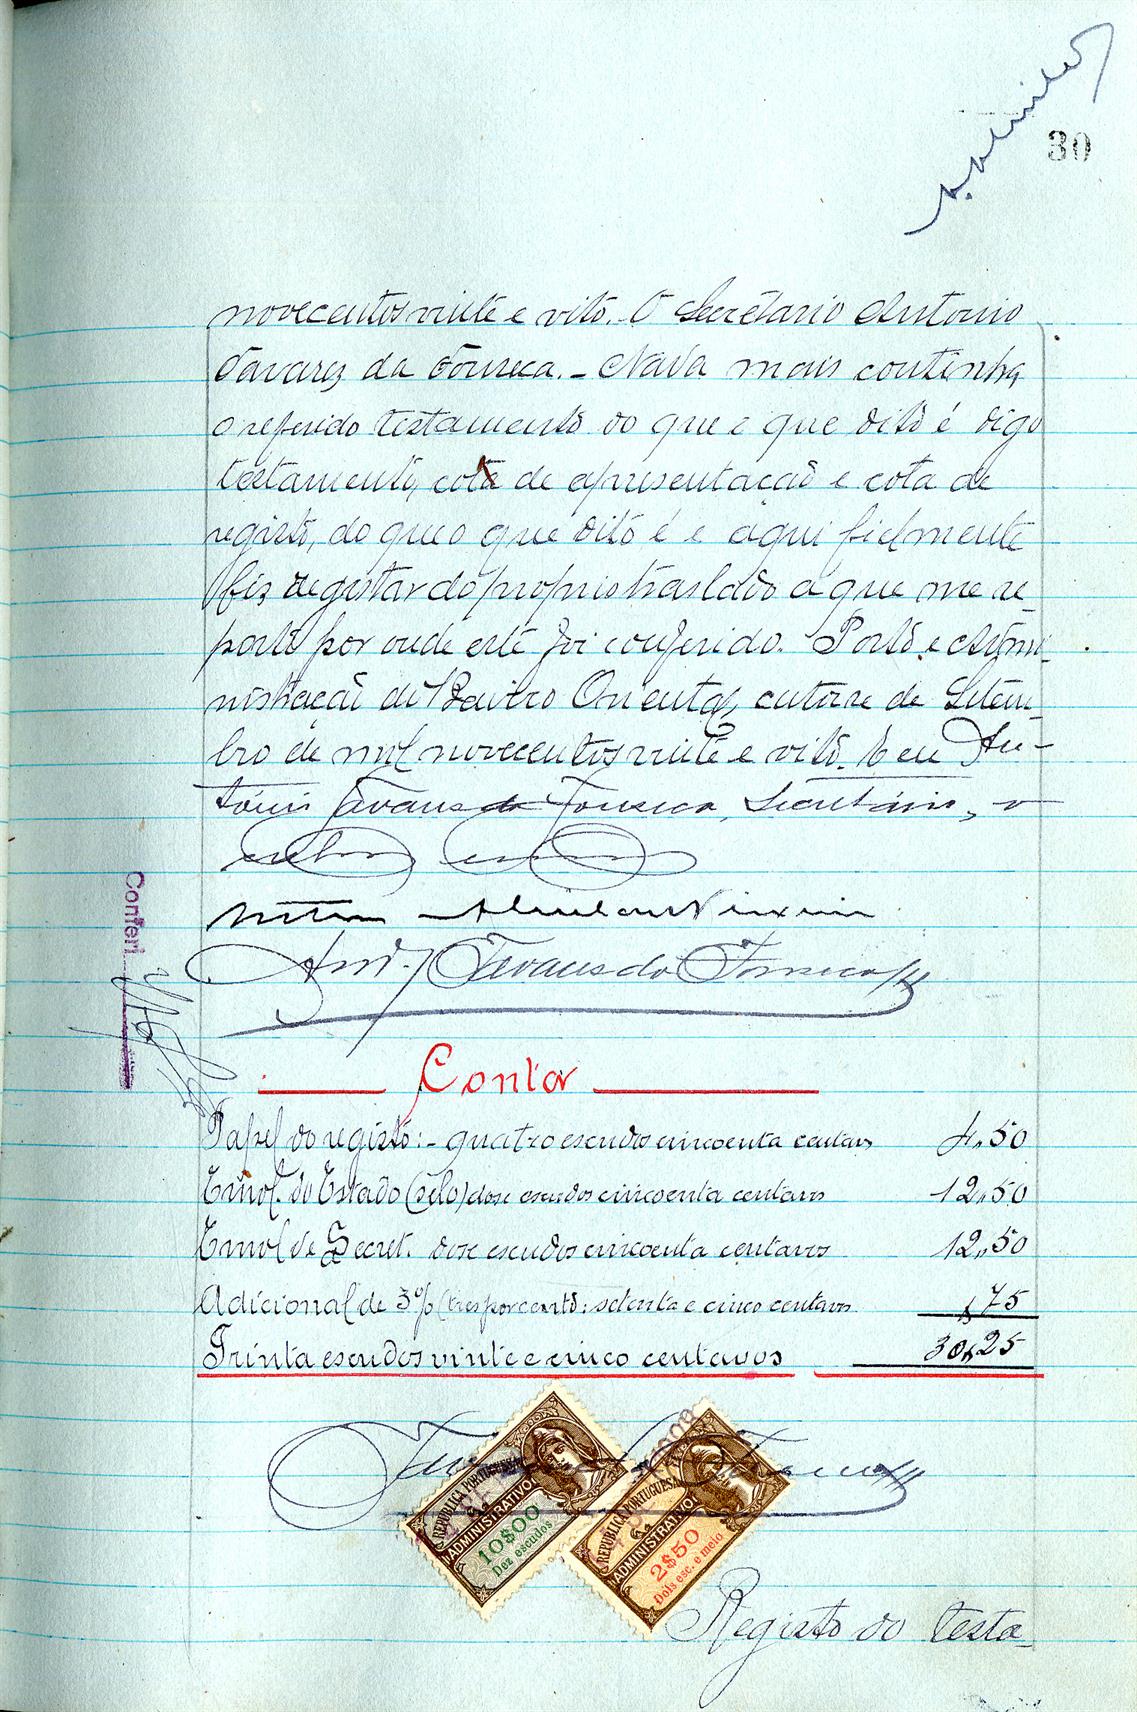 30
novecentos vinte e oito. O Secretario Antonio
Tavares da Fonseca. - Nada mais continha
o referido testamento do que e que dito é digo
testamento, cota de apresentação e cota de
registo, do que o que dito é e aqui fielmente
fiz registar do proprio traslado a que me re-
porto por onde este foi conferido. Porto e Admi-
nistração do Bairro Oriental, catorze de Setem-
bro de mil novecentos vinte e oito. E eu An-
tónio Tavares da Fonseca, Secretário, o
Ant. Tavares da Fonseca
Conferi
Conta
Papel do registo: - quatro escudos cincoenta centavos 4,50
Emol. do Estado (selo) dose escudos cincoenta centavos 12,50
Emol de Secret. dose escudos cincoenta centavos 12,50
Adicional de 3% (tres por cento: setenta e cinco centavos $75
Trinta escudos vinte e cinco centavos 30$25
REPUBLICA PORTUGUESA
ADMINISTRATIVO
10$00
Dez escudos
REPUBLICA PORTUGUESA
ADMINISTRATIVO
2$50
Dois esc. e meio
Registo do testa-